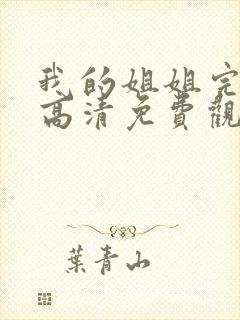 我的姐姐完
高清免費觀
葉青山